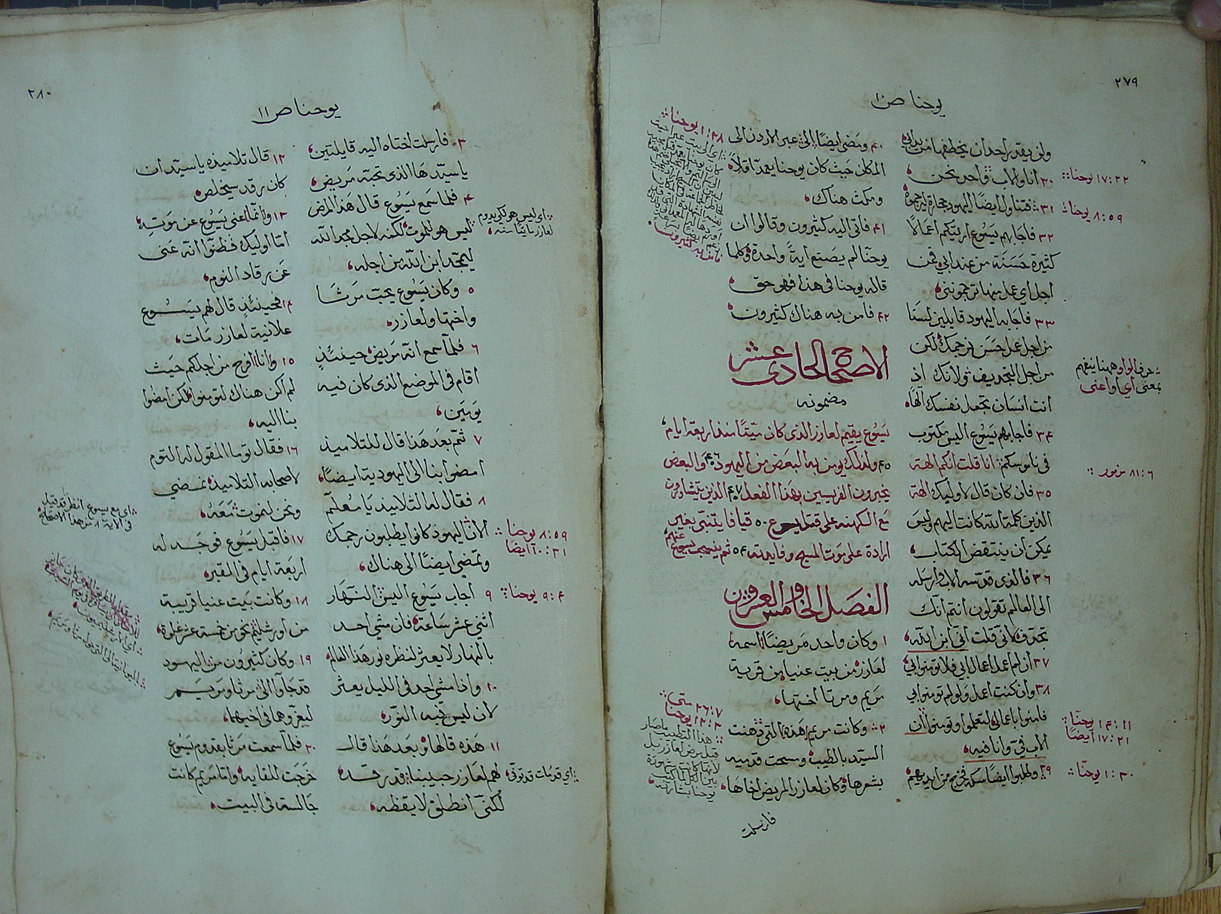 ٢٧٩
يوحنا ص ١٠
ولن يقدر احد ان يخطفها من يد ابي
٣٠ انا والاب واحد نحن
٣١ فتناول ايضًا اليهود حجارة ليرجموه
٣٢ فاجابهم يسوع اريتكم اعمالًا
كثيرة حسنة من عند ابي فمن
اجل اي عمل منها ترجمونني
٣٣ فاجابه اليهود قايلين لسنا
من اجل عمل حسن نرجمك لكن
من اجل التجديف ولانك اذ
انت انسان تجعل نفسك الهًا
٣٤ فاجابهم يسوع اليس مكتوب
في ناموسكم انا قلت انكم الهة
٣٥ فان كان قال لاوليك الهة
الذين كلمة الله كانت اليهم وليس
يمكن ان ينتقض الكتاب
٣٦ فالذي قدسه الاب وارسله
الى العالم تقولون انتم انك
تجدف لاني قلت اني ابن الله
٣٧ ان لم اعمل اعمال ابي فلا تومنوا بي
٣٨ وان كنت اعمل ولو لم تومنوا بي
فامنوا باعمالي لتعلموا وتومنوا ان
الاب في وانا فيه
٣٩ وطلبوا ايضا مسكه فخرج من ايديهم
١٧:٢٢ يوحنا
٨:٥٩ يوحنا
حرف الواو ههنا يفهم
بمعنى اي او اعني
٨١:٦ مزمور
١٤:١١ يوحنا
١٧:٢١ ايضًا
١:٣٠ يوحنا
٤٠ ومضى ايضًا الى عبر الاردن الى
المكان حيث كان يوحنا يعمد اولًا
ومكث هناك
٤١ فاتى اليه كثيرون وقالوا ان
يوحنا لم يصنع ايةً واحدة وكلما
قاله يوحنا في هذا فهو حق
٤٢ فامن به هناك كثيرون
الاصحاح الحادي عشر
مضمونه
يسوع يقيم لعازر الذي كان ميتًا منذ اربعة ايام
٤٥ ولذلك يومن به البعض من اليهود ٤٦ والبعض
يخبرون الفريسيين بهذا الفعل ٤٧ الذين يتشاورون
مع الكهنة على قتل يسوع ٥٠ قيافا يتنبى بغير
ارادة على موت المسيح وفايدته ٥٤ ثم ينحجب يسوع عنهم
الفصل الخامس والعشرون
١ وكان واحد مريضًا اسمه
لعازر من بيت عنيا من قرية
مريم ومرتا اختها
٢ وكانت مريم هذه التي دهنت
السيد بالطيب ومسحت قدميه
بشعرها وكان لعازر المريض اخاها
١:٢٨ يوحنا
٢٦:٧ متى
١٢:٣ يوحنا
فارسلت
٢٨٠
يوحنا ص ١١
٣ فارسلت اختاه اليه قايلتين
يا سيد ها الذي تحبه مريض
٤ فلما سمع يسوع قال هذا المرض
ليس هو للموت لكنه لاجل مجد الله
ليتمجد ابن الله من اجله
٥ وكان يسوع يحب مرثا
واختها ولعازر
٦ فلما سمع انه مريض حينئذٍ
اقام في الموضع الذي كان فيه
يومين
٧ ثم بعد هذا قال للتلاميذ
امضوا بنا الى اليهودية ايضًا
٨ فقال له التلاميذ يا معلم
الان اليهود كانوا يطلبون رجمك
وتمضي ايضًا الى هناك
٩ اجاب يسوع اليس النهار
اثني عشر ساعة فان مشى احد
بالنهار لا يعثر لنظره نور هذا العالم
١٠ واذا مشى احد في الليل يعثر
لان ليس فيه النور
١١ هذه قالها وبعد هذا قال
لهم لعازر حبيبنا قد رقد
لكنني انطلق لايقظه
اي ليس هو لكي يدوم
لعازر مايتًا منه
٨:٥٩ يوحنا
١٠:٣١ ايضا
٩:٤ يوحنا
اي قد مات قد توفى
١٢ قال تلاميذه يا سيد ان
كان رقد سيخلص
١٣ وانما عنى يسوع عن موته
اما اوليك فظنوا انه عنى
عن رقاد النوم
١٤ فحينئذٍ قال لهم يسوع
علانية لعازر مات
١٥ وانا افرح من اجلكم حيث
لم اكن هناك لتومنوا لكن امضوا
بنا اليه
١٦ فقال توما المقول له التوم
لاصحابه التلاميذ نمضي
ونحن لنموت معه
١٧ فاقبل يسوع فوجد له
اربعة ايام في القبر
١٨ وكانت بيت عنيا قريبة
من اورشليم نحو من خمسة عشر غلوة
١٩ وكان كثيرون من اليهود
قد جاوا الى مرثا ومريم
ليعزوهما في اخيهما
٢٠ فلما سمعت مرثا بقدوم يسوع
خرجت للقايه واما مريم كانت
جالسة في البيت
اي مع يسوع انظر ما قد قيل
في الاية ٨ من هذا الاصحاح